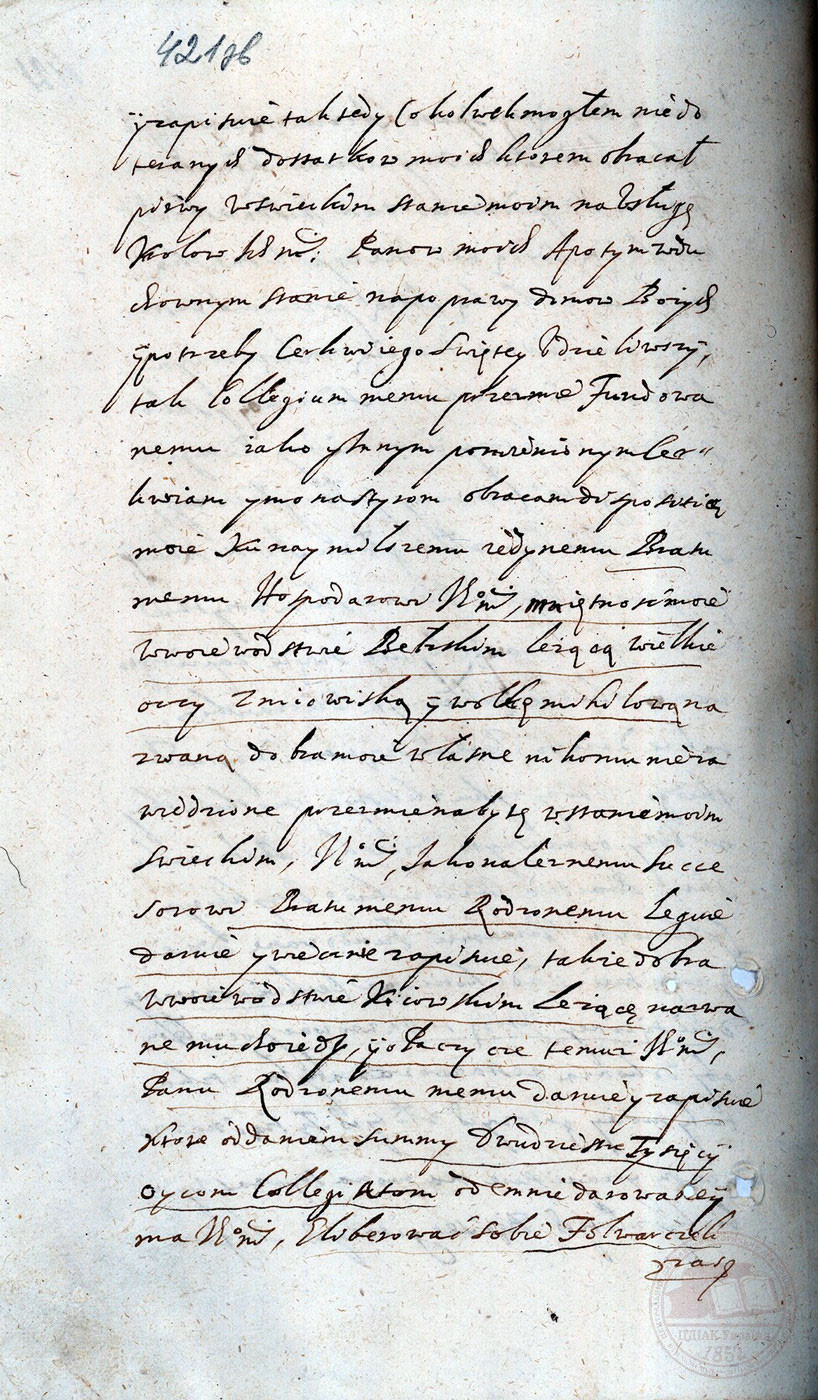 421 зв
y zapisuię tak tedy Cokolwek mogłem niedo
teranych dostatkow moich ktorem obracał
pirwy wswieckim stanie moim na Usługę
Krolow Ich mći: Panow moich Apotym wdu
chownym stanie na poprawy domow Bożych
ÿ potrzeby Cerkwi iego Swiętey Udzieliwszy,
tak Collegium memu przezmie Fundowa
nemu iako y Innym pomienionym Cer"
kwiam y monastyrom obracam dispositią
moię Ku naymilszemu iedynemu Bratu
memu Hospodarowi Je°mći, maiętnosć moię
w woiewodstwie Bełzskim leżącą wielkie
oczy Zmiowiską ÿ wolkę mihilową na
zwaną dobra moie własne nikomu nieza
wiedzione przezmie nabytę w stanie moim
swieckim, Je°mći, Jako należnemu Succe
sorowi Bratu memu Rodzonemu Leguię
daruię y wiecznie zapisuię, także dobra
w woiewodstwie Kiiowskim Leżącę nazwa
ne muchoiedy, ÿ opaczycze temuż Je°mći,
Panu Rodzonemu memu daruię y zapisuię
Ktore oddaniem summy dwudziestu Tysięcÿ
Oycom Collegiatom odemnie darowaneÿ
ma Je°mći, Eliberować sobie Folwarczek
zaś
ЦДІАК України
1852